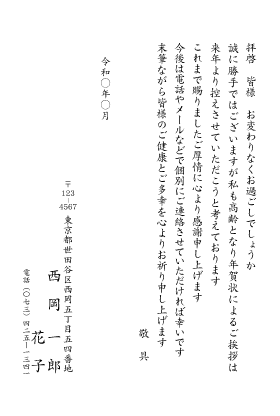 拝啓　皆様　お変わりなくお過ごしでしょうか
誠に勝手ではございますが私も高齢となり年賀状によるご挨拶は
来年より控えさせていただこうと考えております
これまで賜りましたご厚情に心より感謝申し上げます
今後は電話やメールなどで個別にご連絡させていただければ幸いです
末筆ながら皆様のご健康とご多幸を心よりお祈り申し上げます
敬具
令和〇年〇月
〒123-4567
東京都世田谷区西岡五丁目五四番地
西岡一郎
花子
電話（〇七三）四二五ー一三四一